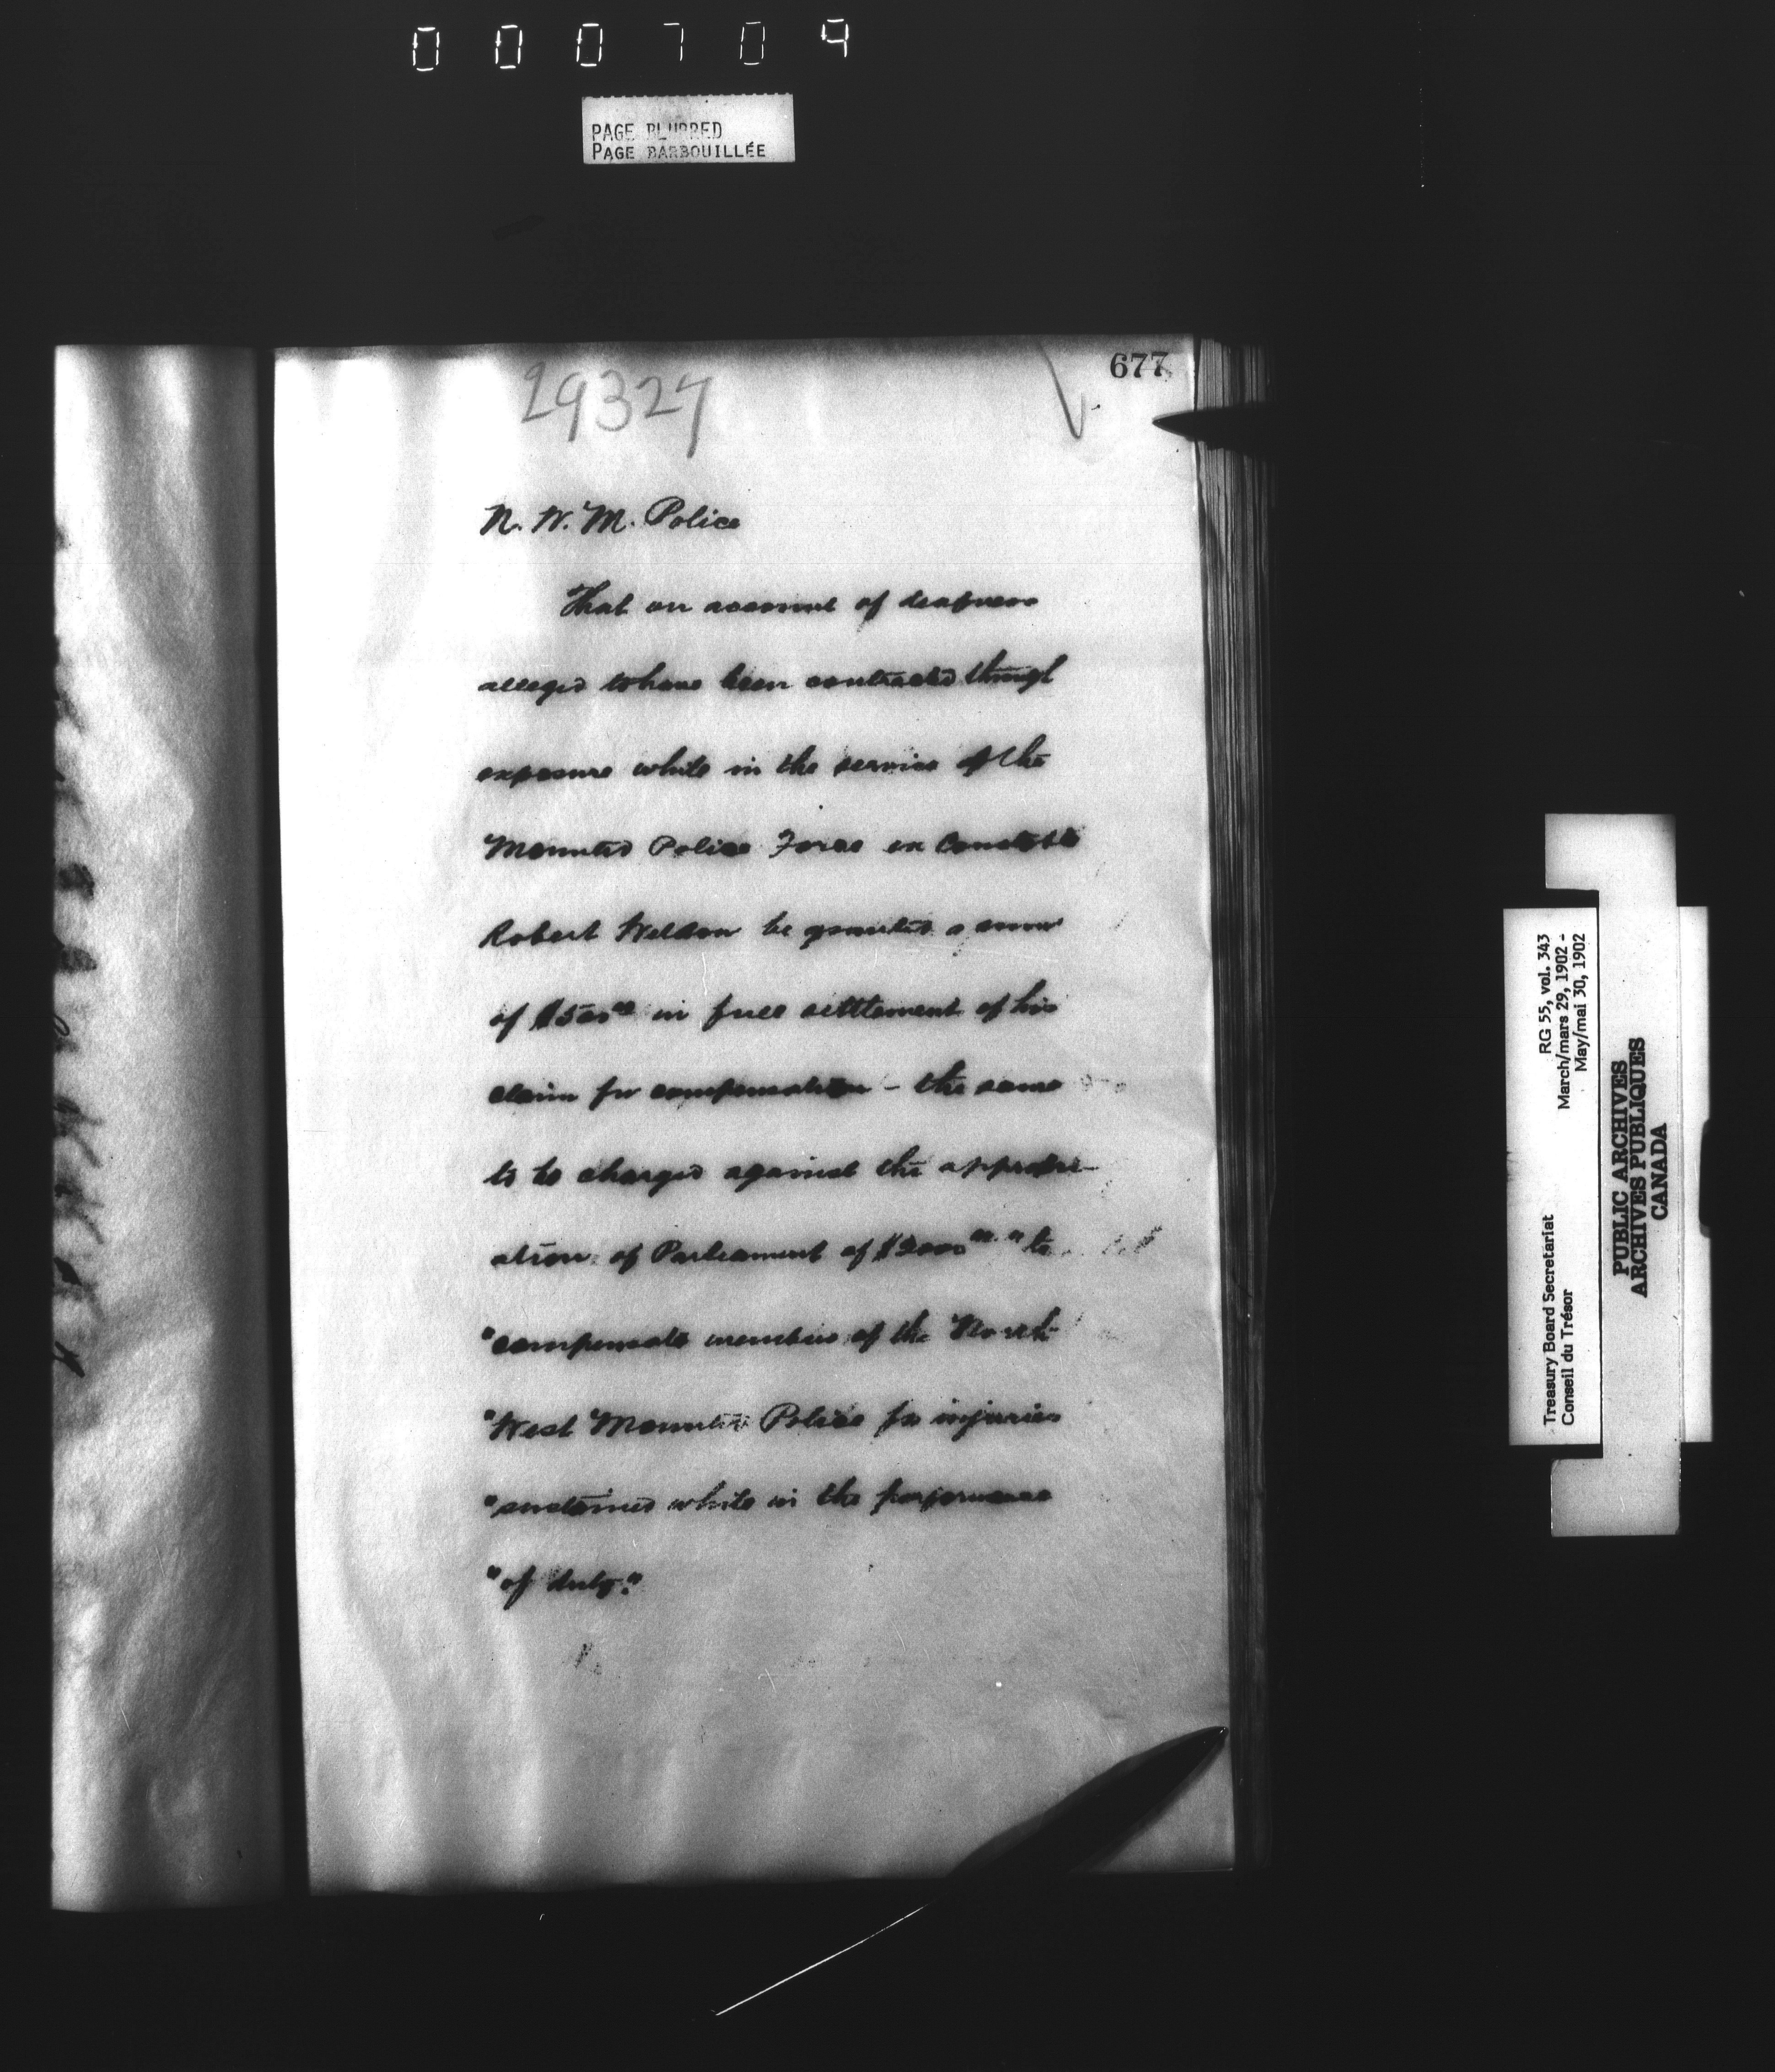 000709
PAGE BLURRED
PAGE BARBOUILLÉE
677
29327
N. W. M. Police
That on account of deafness
alleged to have been contracted through
exposure while in the service of the
Mounted Police Force ex Constable
Robert Weldon be granted a sum
of $500⁰⁰ in full setttlement of his
claim for compensation – the same
to be charged against the appropri-
ation of Parliament of $2000⁰⁰ "to
"compensate members of the North-
"West Mounted Police for injuries
"sustained while in the performance
"of duty."
Treasury Board Secretariat
Conseil du Trésor
RG 55, vol. 343
March/mars 29, 1902 -
May/mai 30, 1902
PUBLIC ARCHIVES
ARCHIVES PUBLIQUES
CANADA